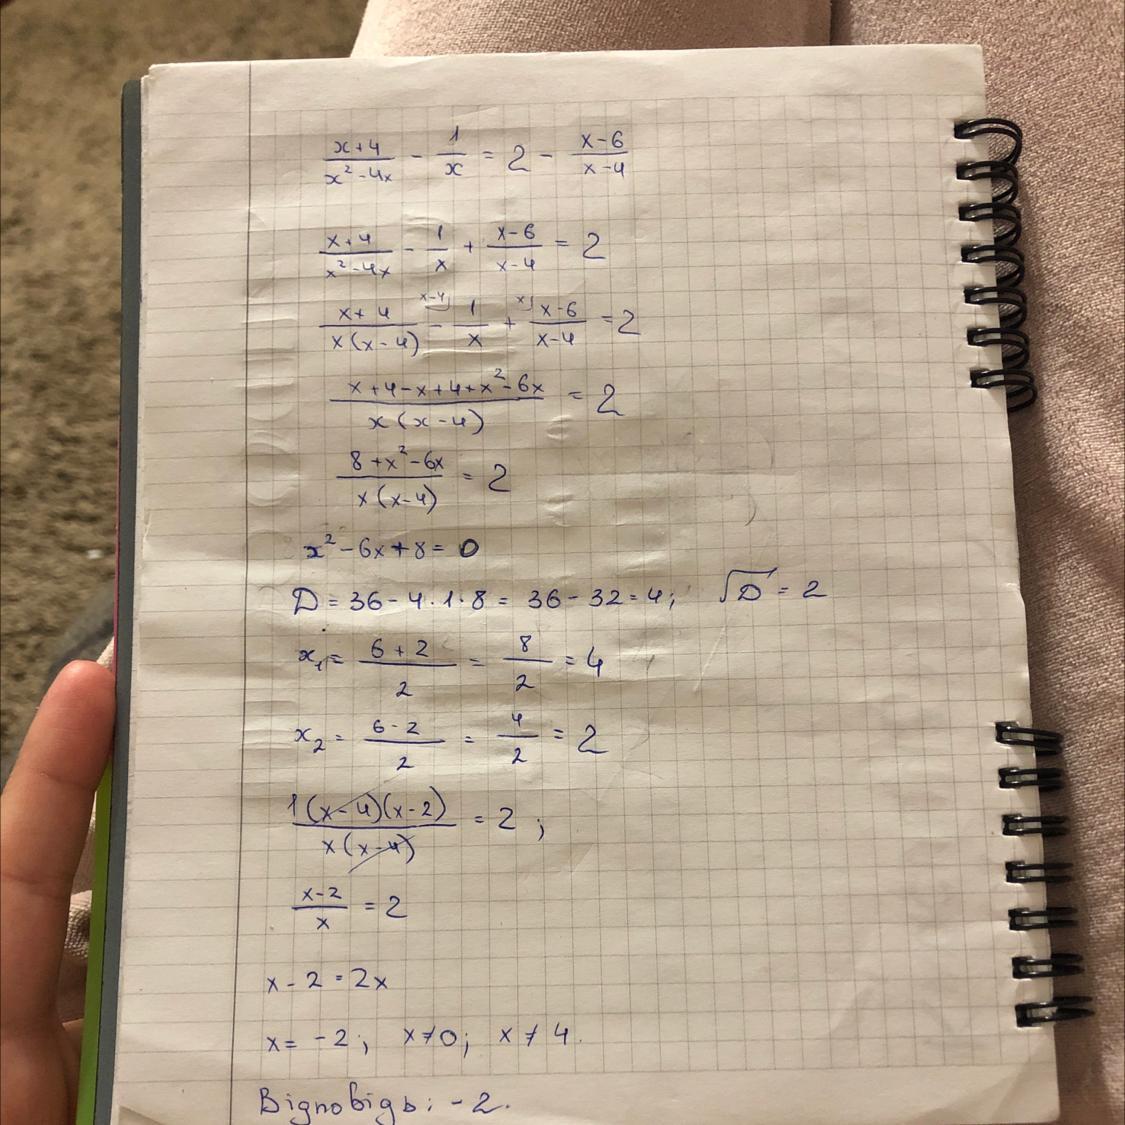 (x+4)/(x²-4x) - 1/x = 2 - (x-6)/(x-4)
(x+4)/(x²-4x) - 1/x + (x-6)/(x-4) = 2
(x+4)/(x(x-4)) - ˣ⁻⁴⁾1/x + ˣ⁾(x-6)/(x-4) = 2
(x+4-x+4+x²-6x)/(x(x-4)) = 2
(8+x²-6x)/(x(x-4)) = 2
x²-6x+8=0
D = 36-4·1·8 = 36-32=4; √D = 2
x₁ = (6+2)/2 = 8/2 = 4
x₂ = (6-2)/2 = 4/2 = 2
1(x-4)(x-2)/(x(x-4)) = 2;
(x-2)/x = 2
x-2=2x
x= -2; x≠0; x≠4.
Відповідь: -2.